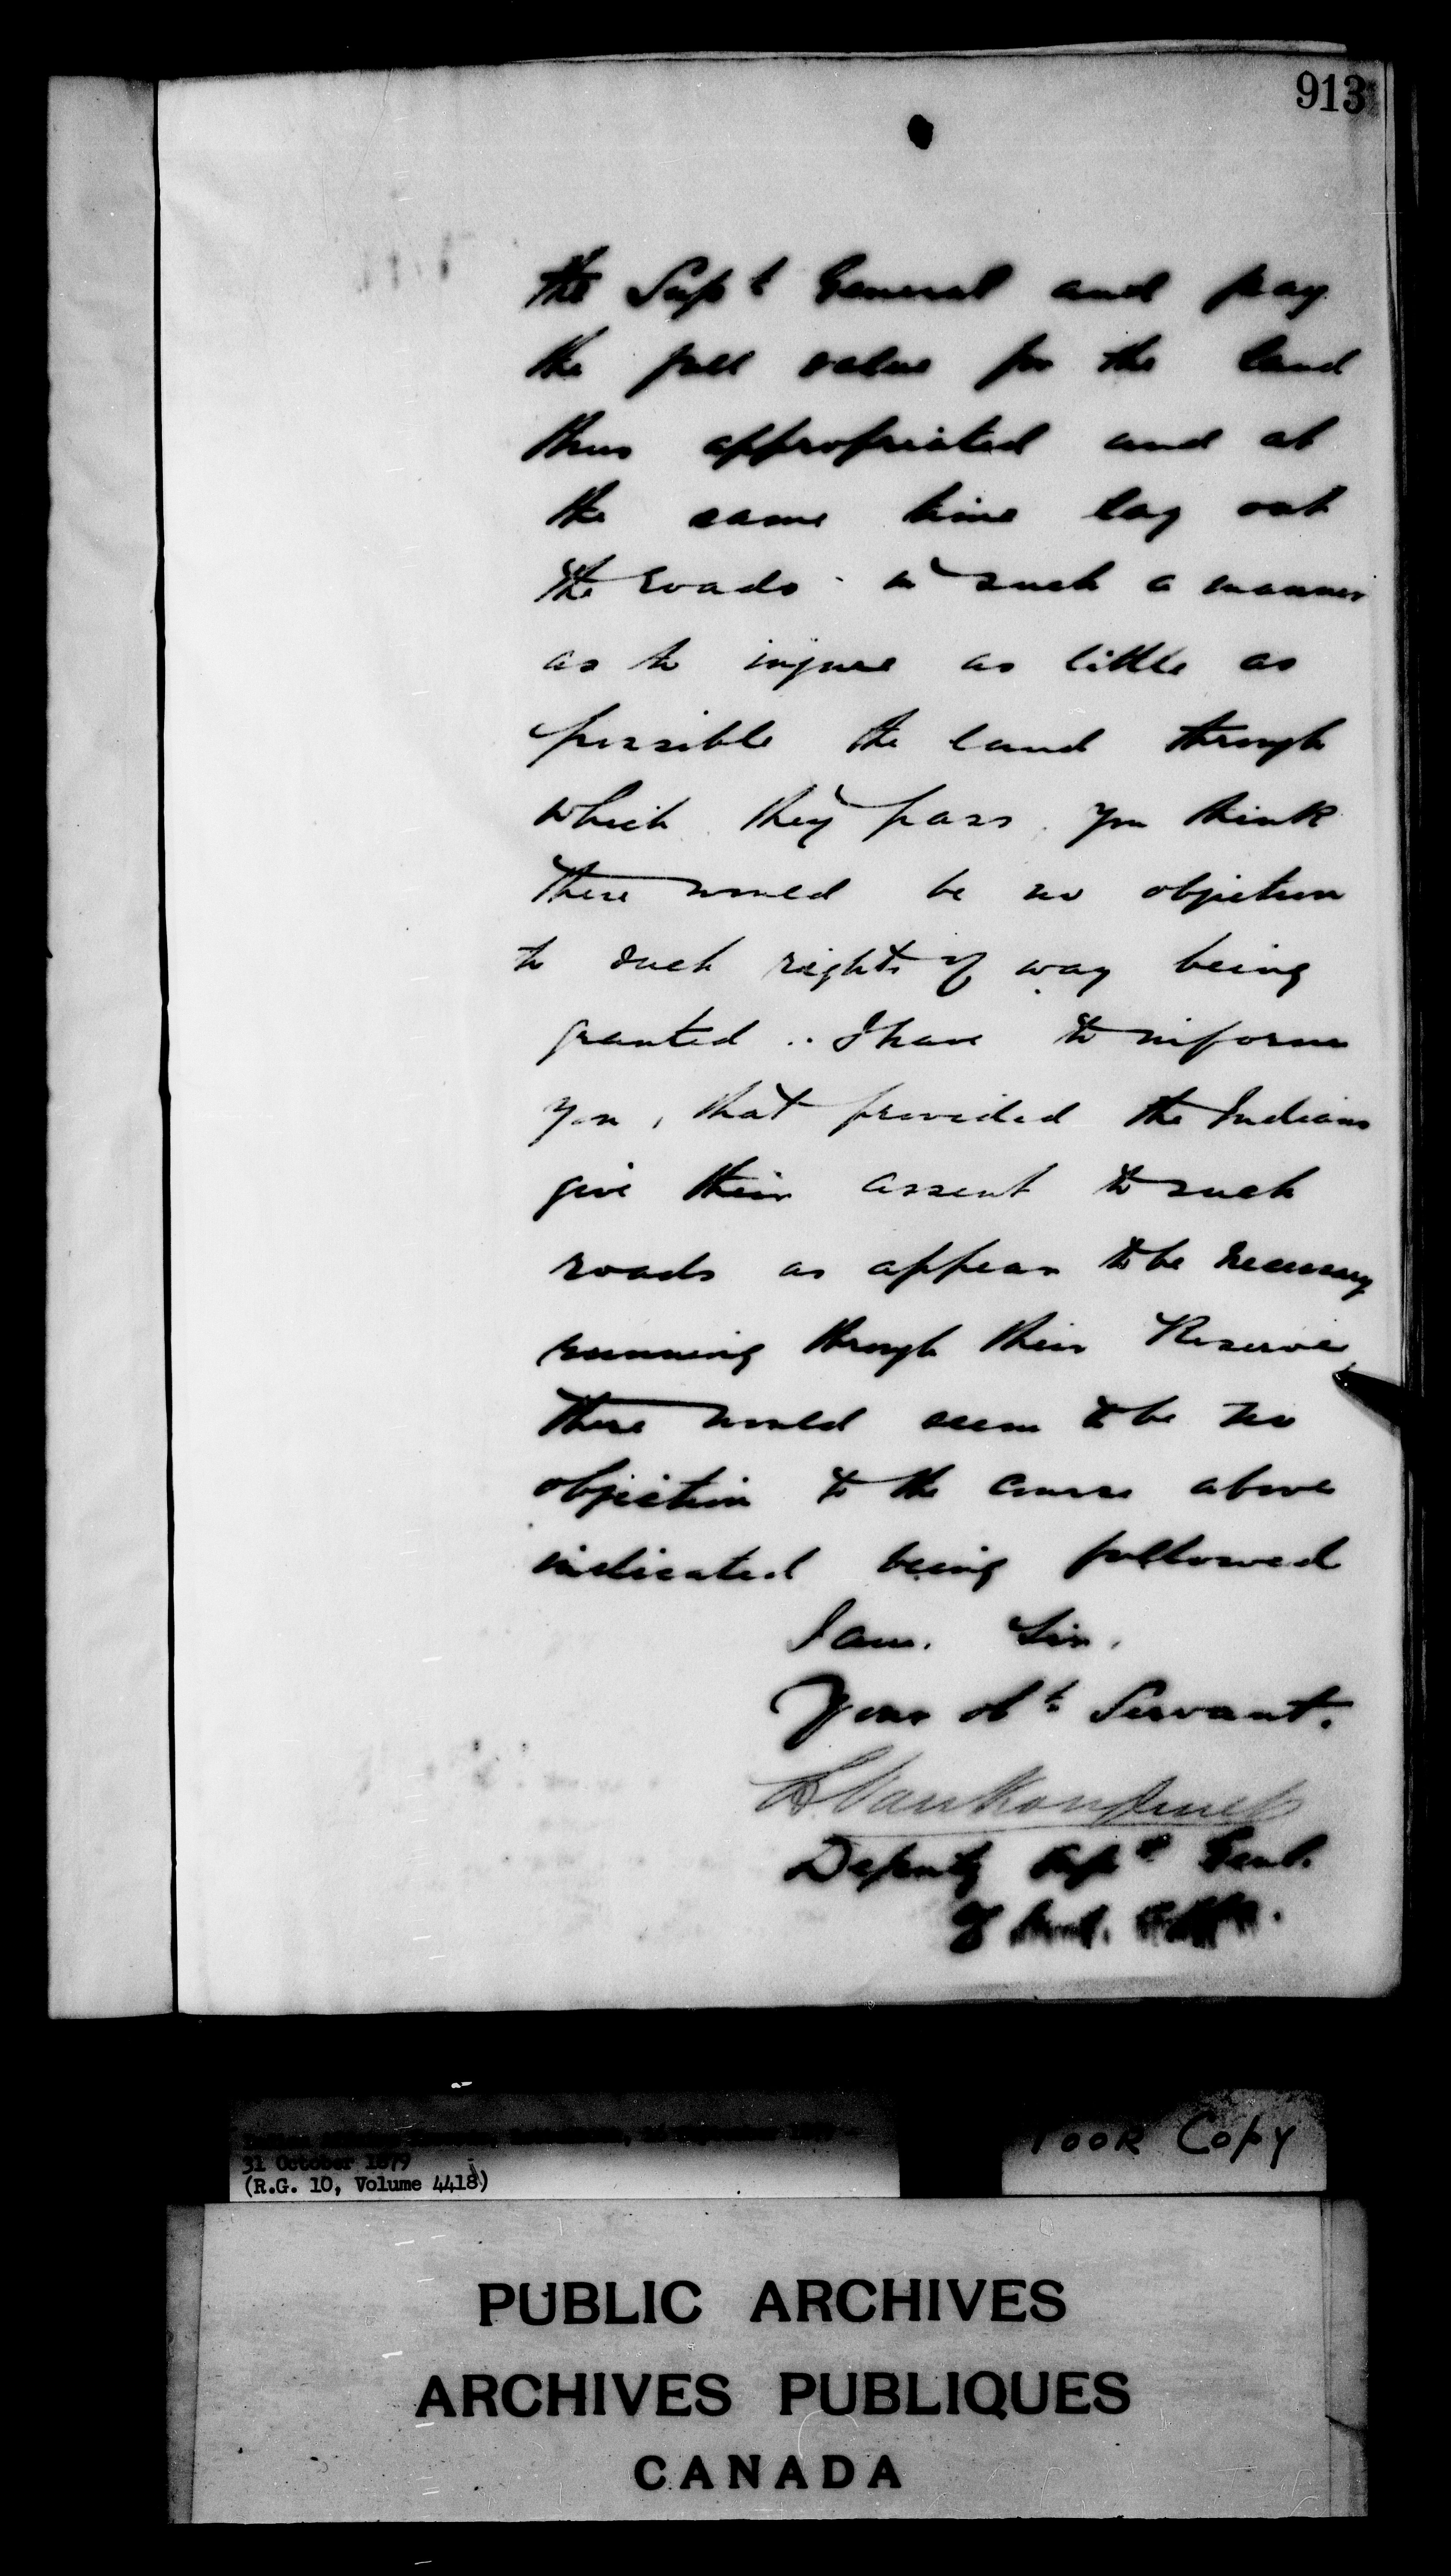 913
the Supt General and pay
the full value for the land
thus appropriated and at
the same time lay out
the roads in such a manner
as to injure as little as
possible the land through
which they pass. you think
there would be no objection
to such rights of way being
granted .. I have to inform
you, that provided the Indians
give their assent to such
roads as appear to be necessary
running through their Reserve
there would seem to be no
objection to the course above
indicated being followed
I am. Sir.
Your obt Servant.
L VanKoughnet
Deputy Supt Genl.
of Ind. Affrs.
31 October 1879
(R.G. 10, Volume 4418)
Poor Copy
PUBLIC ARCHIVES
ARCHIVES PUBLIQUES
CANADA